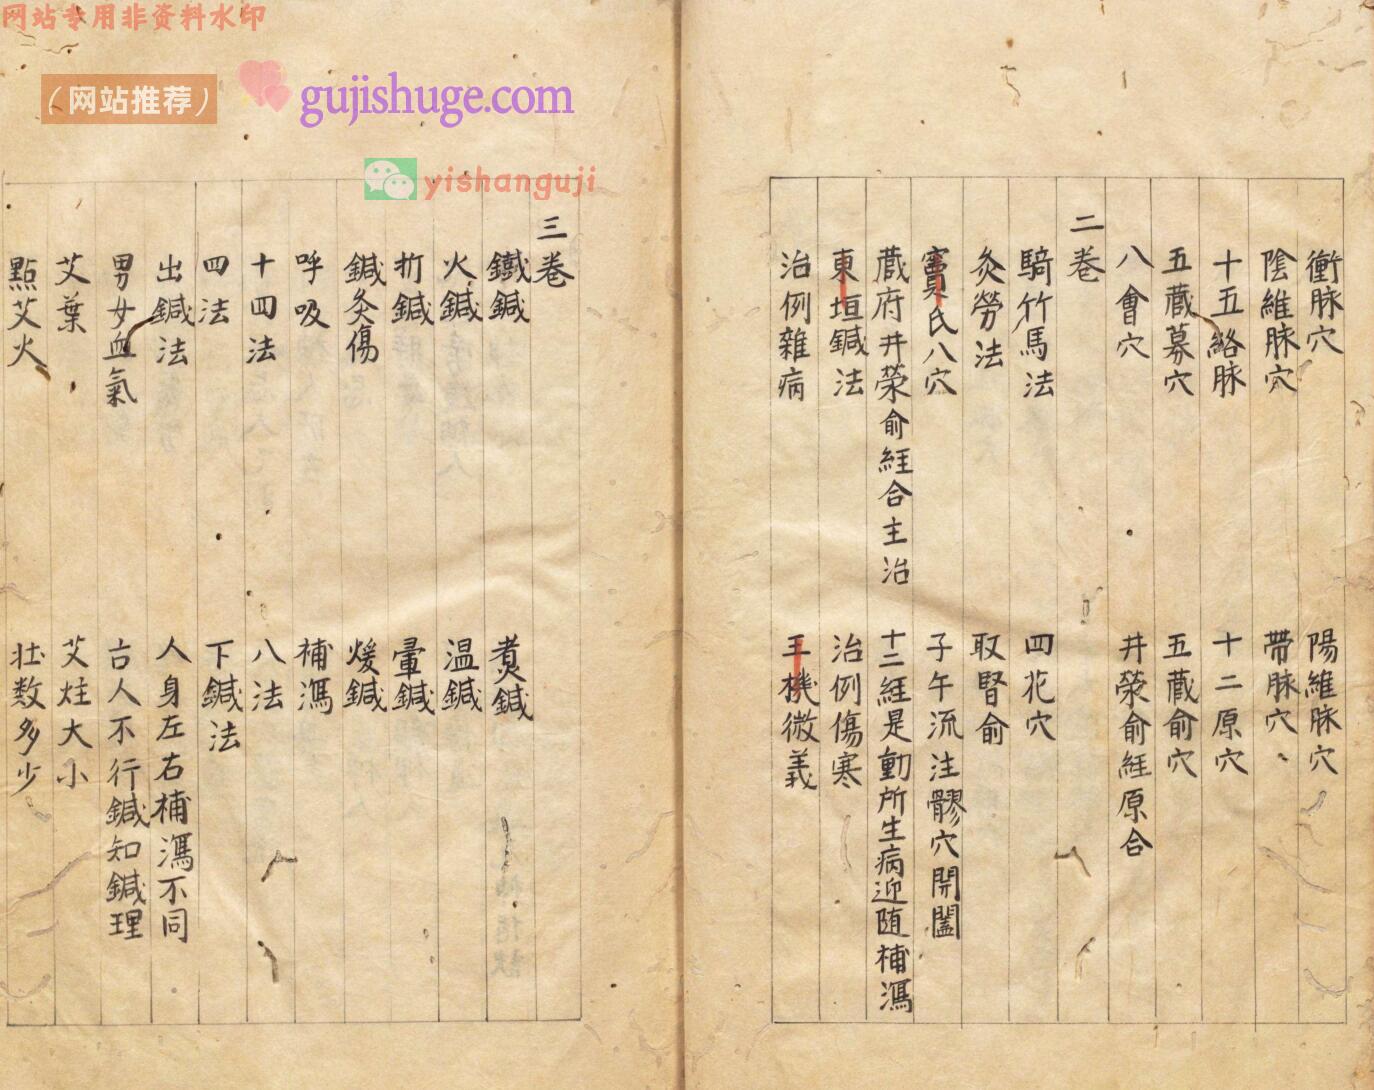 网站专用非资料水印
（网站推荐）
gujishuge.com
yishanguji
衝脉穴　陽維脉穴
陰維脉穴　帶脉穴
十五絡脉　十二原穴
五藏募穴　五藏俞穴
八會穴　井滎俞経原合
二卷
騎竹馬法　四花穴
灸勞法　取腎俞
竇氏八穴　子午流注髎穴開闔
藏府井荣俞経合主治　十二経是動所生病迎随補瀉
東垣鍼法　治例傷寒
治例雜病　玉機微義
三卷
鐵鍼　煮鍼
火鍼　温鍼
折鍼　暈鍼
鍼灸傷　煖鍼
呼吸　補瀉
十四法　八法
四法　下鍼法
出鍼法　人身左右補瀉不同
男女血氣　古人不行鍼知鍼理
艾葉　艾炷大小
點艾火　壮数多少